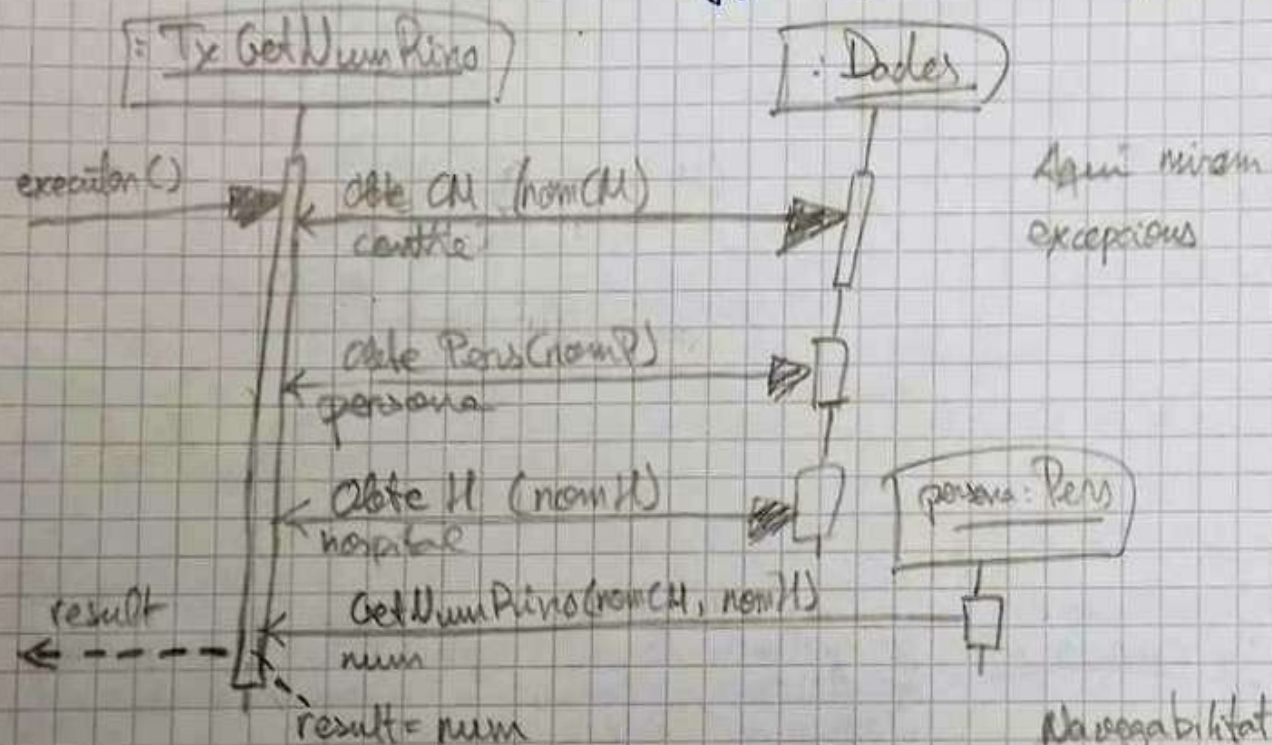 : TxGetNumRino
: Dades
executar()
obté CM (nomCM)
centre
Aqui miram
excepcions
obté Pers(nomP)
persona
Obté H (nomH)
hospital
persona: Pers
GetNumRino(nomCM, nomH)
num
result
result = num
Navegabilitat